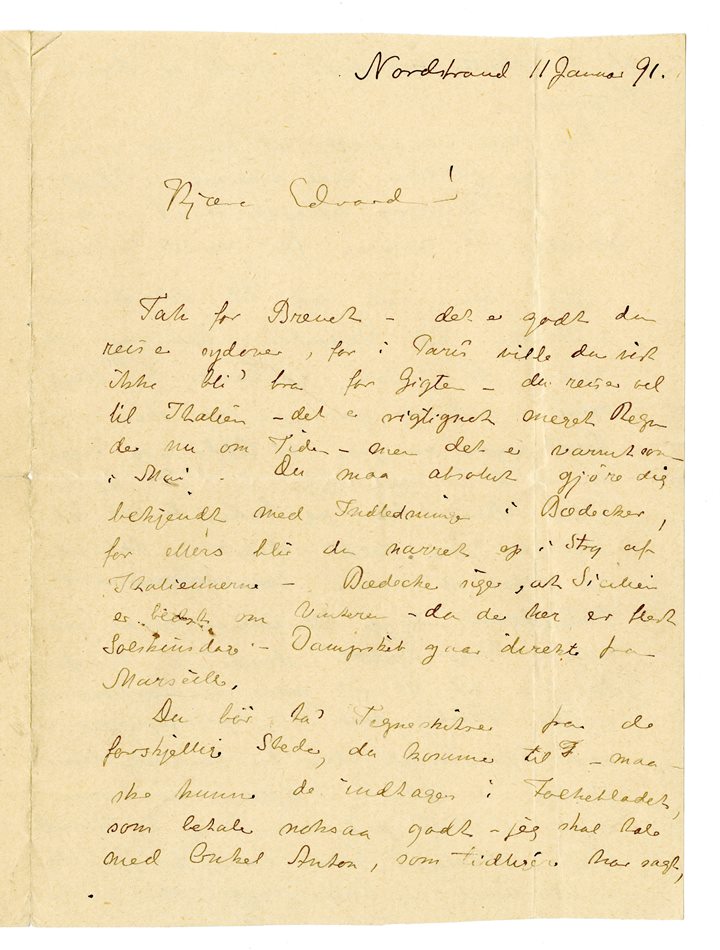 Nordstrand 11 Januar 91.
Kjære Edvard!
Tak for Brevet – det er godt du
reiser sydover, for i Paris ville du vist
ikke bli' bra for Gigten – du reiser vel
til Italien – det er rigtignok meget Regn
der nu om Tiden – men det er varmt som
i Mai. Du maa absolut gjöre dig
bekjendt med Indledningen i Bædecker,
for ellers blir du narret op i Stry af
Italienerne – Bædecker siger, at Sicilien
er bedst om Vinteren – da der her er flest
Solskinsdage – Dampskib gaar direkte fra
Marseille.
Du bör ta' Tegneskitser fra de
forskjellige Steder, du kommer til – maa-
ske kunne de indtages i Folkebladet,
som betaler noksaa godt – jeg skal tale
med Onkel Anton, som tidligere har sagt,